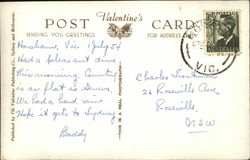 Valentine's
POST CARD
SENDING YOU GREETINGS FOR ADDRESS
Horsham, Vic 1 July 54
Had a pleasant drive
this morning. Country
is as flat as
We had a hard
Hope it gets to Sydney
Daddy
Charles
26 Roseville Ave
Roseville
NSW
VIC.
Published by The Valentine Publishing Co., Sydney and Melbourne
THIS IS A REAL PHOTOGRAPH